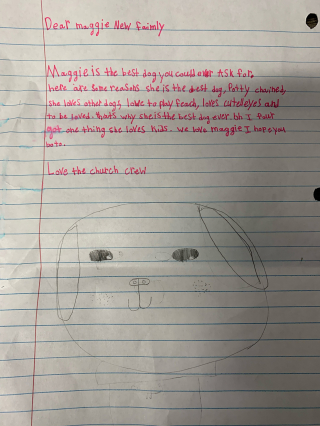 Dear maggie New faimly
Maggie is the best dog you could ever ask for,
here are some reasons she is the best dog, Potty chained,
she loves other dogs, love to play feach, loves cuteleyes and
to be loved. thats why she is the best dog ever. oh I four
got one thing she loves kids. we love maggie I hope you
to.
Love the church crew